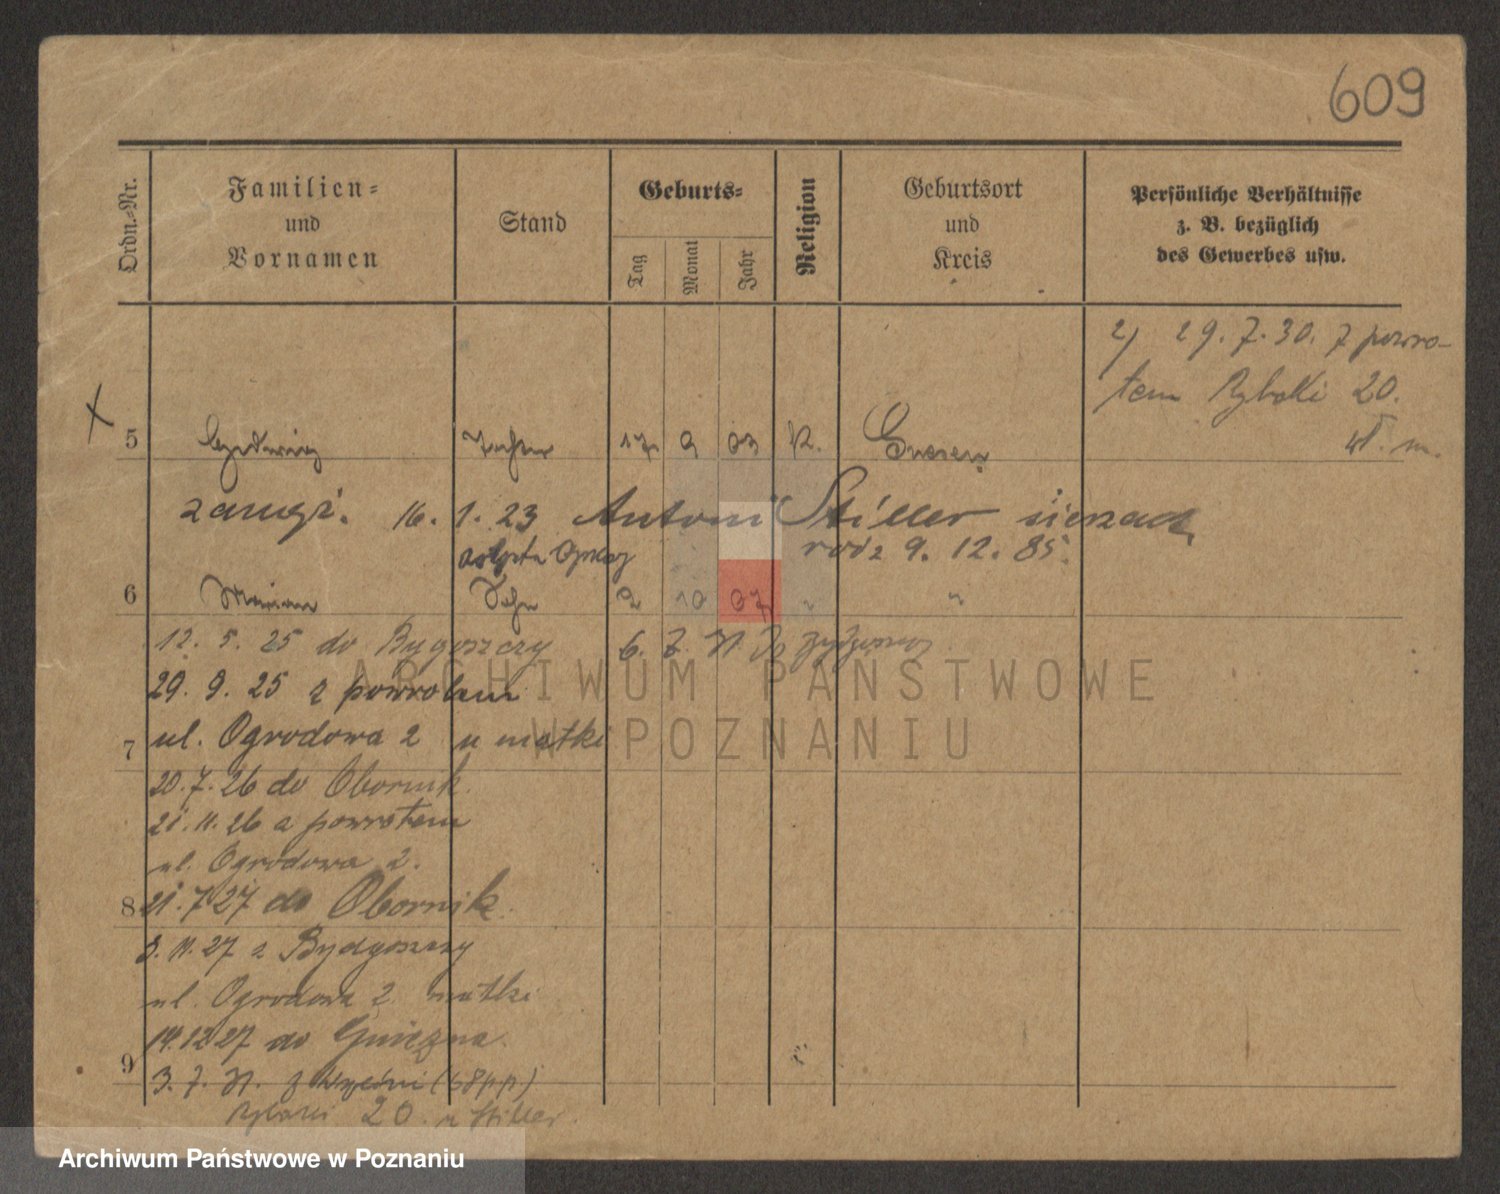 609
Ordn.-Nr.
Familien-
und
Vornamen
Stand
Geburts-
Tag
Monat
Jahr
Religion
Geburtsort
und
Kreis
Persönliche Verhältnisse
z. B. bezüglich
des Gewerbes usw.
2) 29. 7. 30. z powro-
tem Rybaki 20.
x
5 Hedwig Tochter 17 9 03 K. Gnesen
zamęż. 16. 1. 23 Antoni Stiller
rodz 9. 12. 85.
6 Marian Sohn 2 10 07 " "
12. 5. 25 do Bygoszczy 6. 7. 31.
29. 9. 25 z powrotem
7 ul. Ogrodowa 2 u matki
20. 7. 26 do Obornik.
21. 11. 26 z powrotem
ul. Ogrodowa 2.
8 21. 7 27 do Obornik.
3. 11. 27 z Bydgoszczy
ul. Ogrodowa 2. matki
14.12 27 do Gniezna.
9 3. 7. 31. z Wrześni (68 pp)
Rybaki 20. u Stiller.
ARCHIWUM PAŃSTWOWE
W POZNANIU
Archiwum Państwowe w Poznaniu